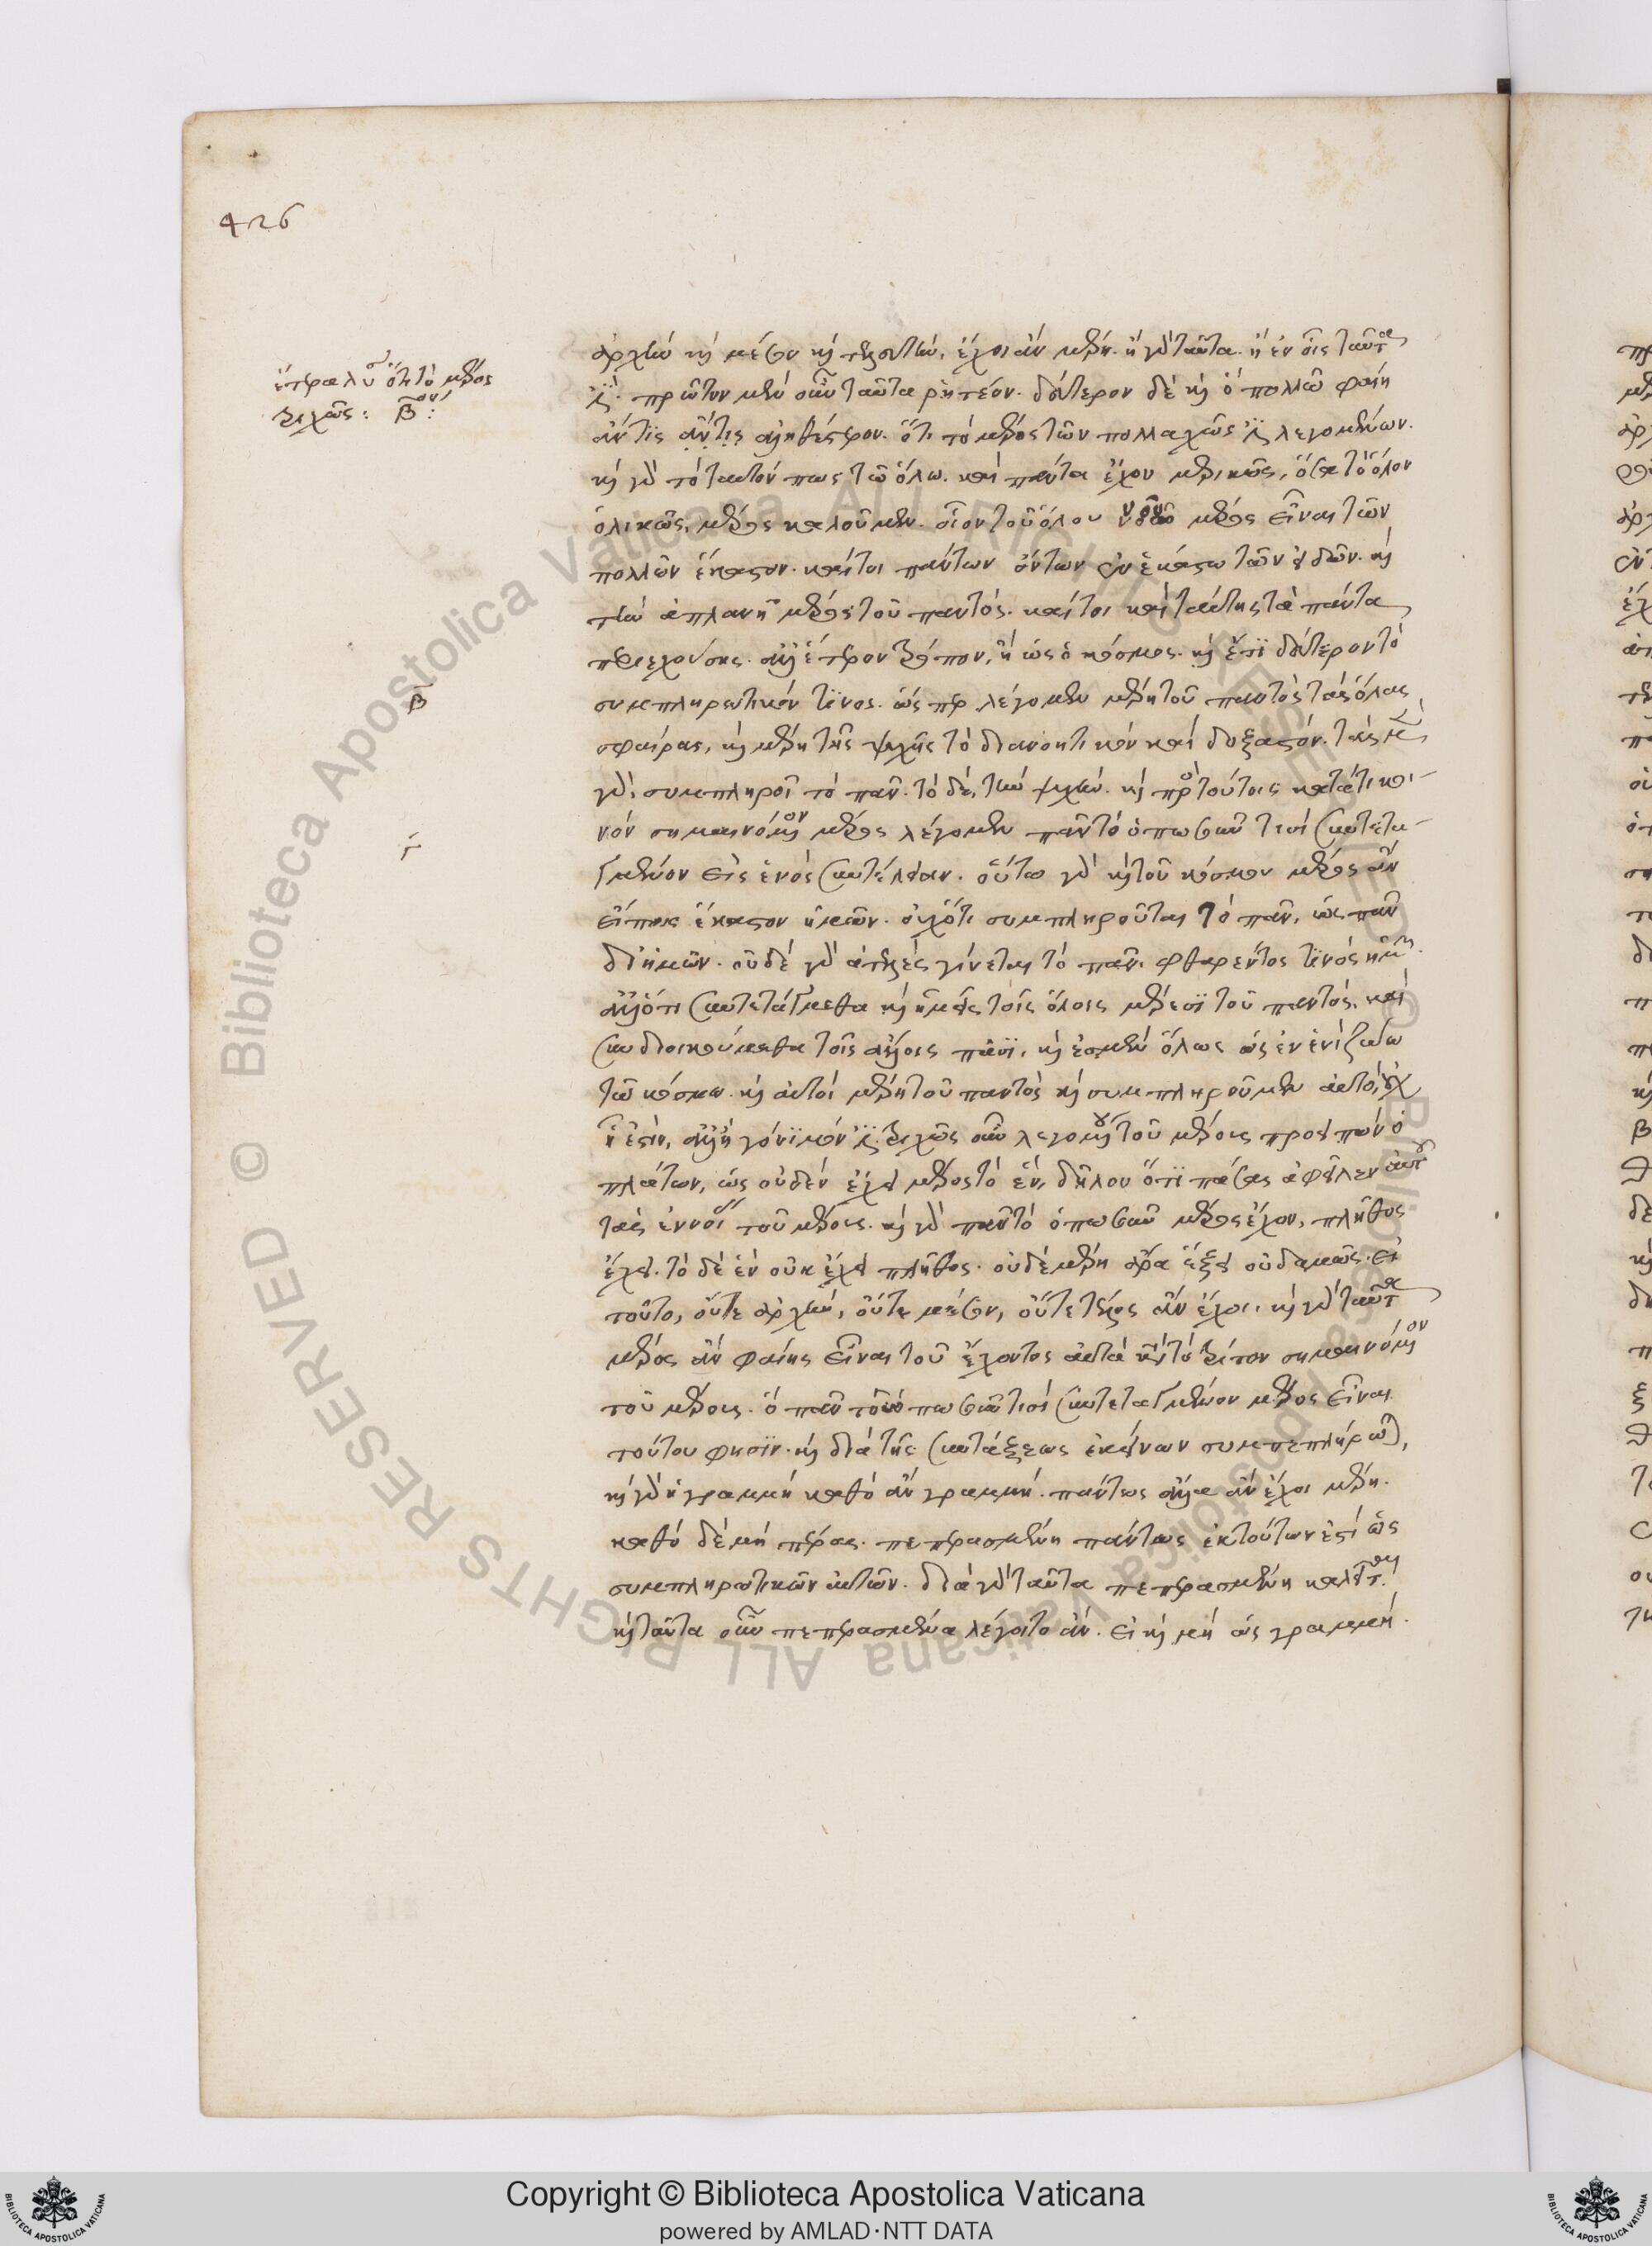 426
ἕτέρα λύ ὅτι τὸ μέρος
τριχῶς: β:
ἀρχὴν καὶ μέσον καὶ τελευτὴν, ἔχοι ἂν μέρη. ἢ γὰρ ταῦτα. ἢ ἐν οἷς ταῦτα
ἐστί. πρῶτον μὲν οὖν ταῦτα ῥητέον. δεύτερον δὲ καὶ ὁ πολλῶ φαίη
ἄν τις ἄν τις ἀληθέστερον. ὅτι τὸ μέρος τῶν πολλαχῶς ἐστι λεγομένων.
καὶ γὰρ τὸ ταυτόν πως τῶ ὅλω. καὶ πάντα ἔχον μερικῶς, ὅσα τὸ ὅλον
ὁλικῶς, μέρος καλοῦμεν. οἷον τοῦ ὅλου νοῦ μέρος εἶναι τῶν
πολλῶν ἕκαστον. καίτοι πάντων ὄντων ἐν ἑκάστω τῶν εἰδῶν. καὶ
τὴν ἀπλανῆ μέρος τοῦ παντός. καίτοι καὶ ταύτης τὰ πάντα
περιεχούσης. ἀλλ' ἕτερον τρόπον, ἢ ὡς ὁ κόσμος. καὶ ἔτι δεύτερον τὸ
β
συμπληρωτικόν τινος. ὥσπερ λέγομεν μέρη τοῦ παντὸς τὰς ὅλας
σφαίρας, καὶ μέρη τῆς ψυχῆς τὸ διανοητικὸν καὶ δοξαστόν. τὰς μὲν
γὰρ, συμπληροῖ τὸ πᾶν. τὸ δὲ, τὴν ψυχήν. καὶ πρὸς τούτοις κατά τι κοι-
γ
νὸν σημαινόμενον μέρος λέγομεν πᾶν τὸ ὁπωσοῦν τισὶ συντετα-
γμένον εἰς ἑνὸς συντέλειαν. οὕτω γὰρ καὶ τοῦ κόσμου μέρος ἂν
εἴποις ἕκαστον ἡμῶν. οὐχ ὅτι συμπληροῦται τὸ πᾶν, ὡς πᾶν
δι' ἡμῶν. οὐδὲ γὰρ ἀτελὲς γίνεται τὸ πᾶν. φθαρέντος τινὸς ἡμῶν.
ἀλλ' ὅτι συντετάγμεθα καὶ ἡμεῖς τοῖς ὅλοις μέρεσι τοῦ παντός. καὶ
συνδιοικούμεθα τοῖς ἄλλοις πᾶσι. καὶ ἐσμὲν ὅλως ὡς ἐν ἑνὶ ζώω
τῶ κόσμω. καὶ αὐτοὶ μέρη τοῦ παντὸς καὶ συμπληροῦμεν αὐτὸ, οὐχ
ᾗ ἐστιν, ἀλλ' ᾗ γόνιμόν ἐστι. τριχῶς οὖν λεγομένου τοῦ μέρους προειπὼν ὁ
πλάτων, ὡς οὐδὲν ἔχει μέρος τὸ ἓν, δῆλον ὅτι πάσας ἀφεῖλεν αὐτοῦ
τὰς ἐννοίας τοῦ μέρους. καὶ γὰρ πᾶν τὸ ὁπωσοῦν μέρος ἔχον, πλῆθος
ἔχει. τὸ δὲ ἓν οὐκ ἔχει πλῆθος. οὐδὲ μέρη ἄρα ἕξει οὐδαμῶς. εἰ
τοῦτο, οὔτε ἀρχὴν, οὔτε μέσον, οὔτε τέλος ἂν ἔχοι. καὶ γὰρ ταῦτα
μέρος ἂν φαίης εἶναι τοῦ ἔχοντος αὐτὰ κατὰ τὸ τρίτον σημαινόμενον
τοῦ μέρους. ὃ πᾶν τὸ ὁπωσοῦν τισὶ συντεταγμένον μέρος εἶναι
τούτου φησίν. καὶ διὰ τῆς συντάξεως ἐκείνων συμπεπλήρωται,
καὶ γὰρ ἡ γραμμὴ καθὸ ἂν γραμμή. πάντως ἄλλα ἂν ἔχοι μέρη.
καθὸ δὲ μὴ πέρας. πεπερασμένη πάντως ἐκ τούτων ἐστὶ ὡς
συμπληρωτικῶν αὐτῶν. διὰ γὰρ ταῦτα πεπερασμένη καλεῖται.
καὶ ταῦτα οὖν πεπερασμένα λέγοιτο ἄν. εἰ καὶ μὴ ὡς γραμμή.
Copyright © Biblioteca Apostolica Vaticana
powered by AMLAD·NTT DATA
© Biblioteca Apostolica Vaticana ALL RIGHTS RESERVED